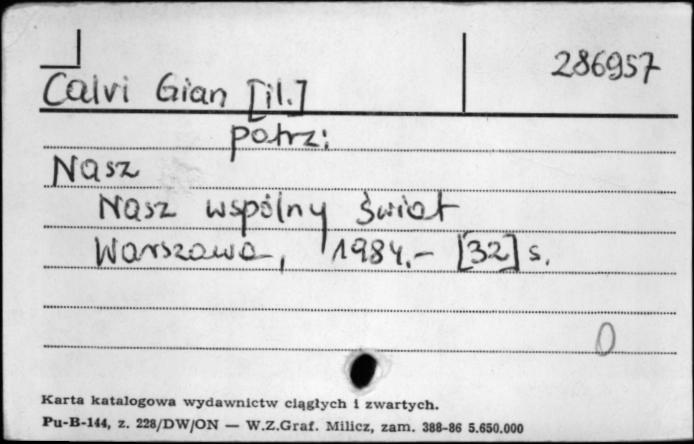 286957
Calvi Gian [il.]
potrz:
Nasz
Nasz wspólny świat
Warszawa, 1984.- [32] s.
0
Karta katalogowa wydawnictw ciągłych i zwartych.
Pu-B-144, z. 228/DW/ON — W.Z.Graf. Milicz, zam. 388-86 5.650.000